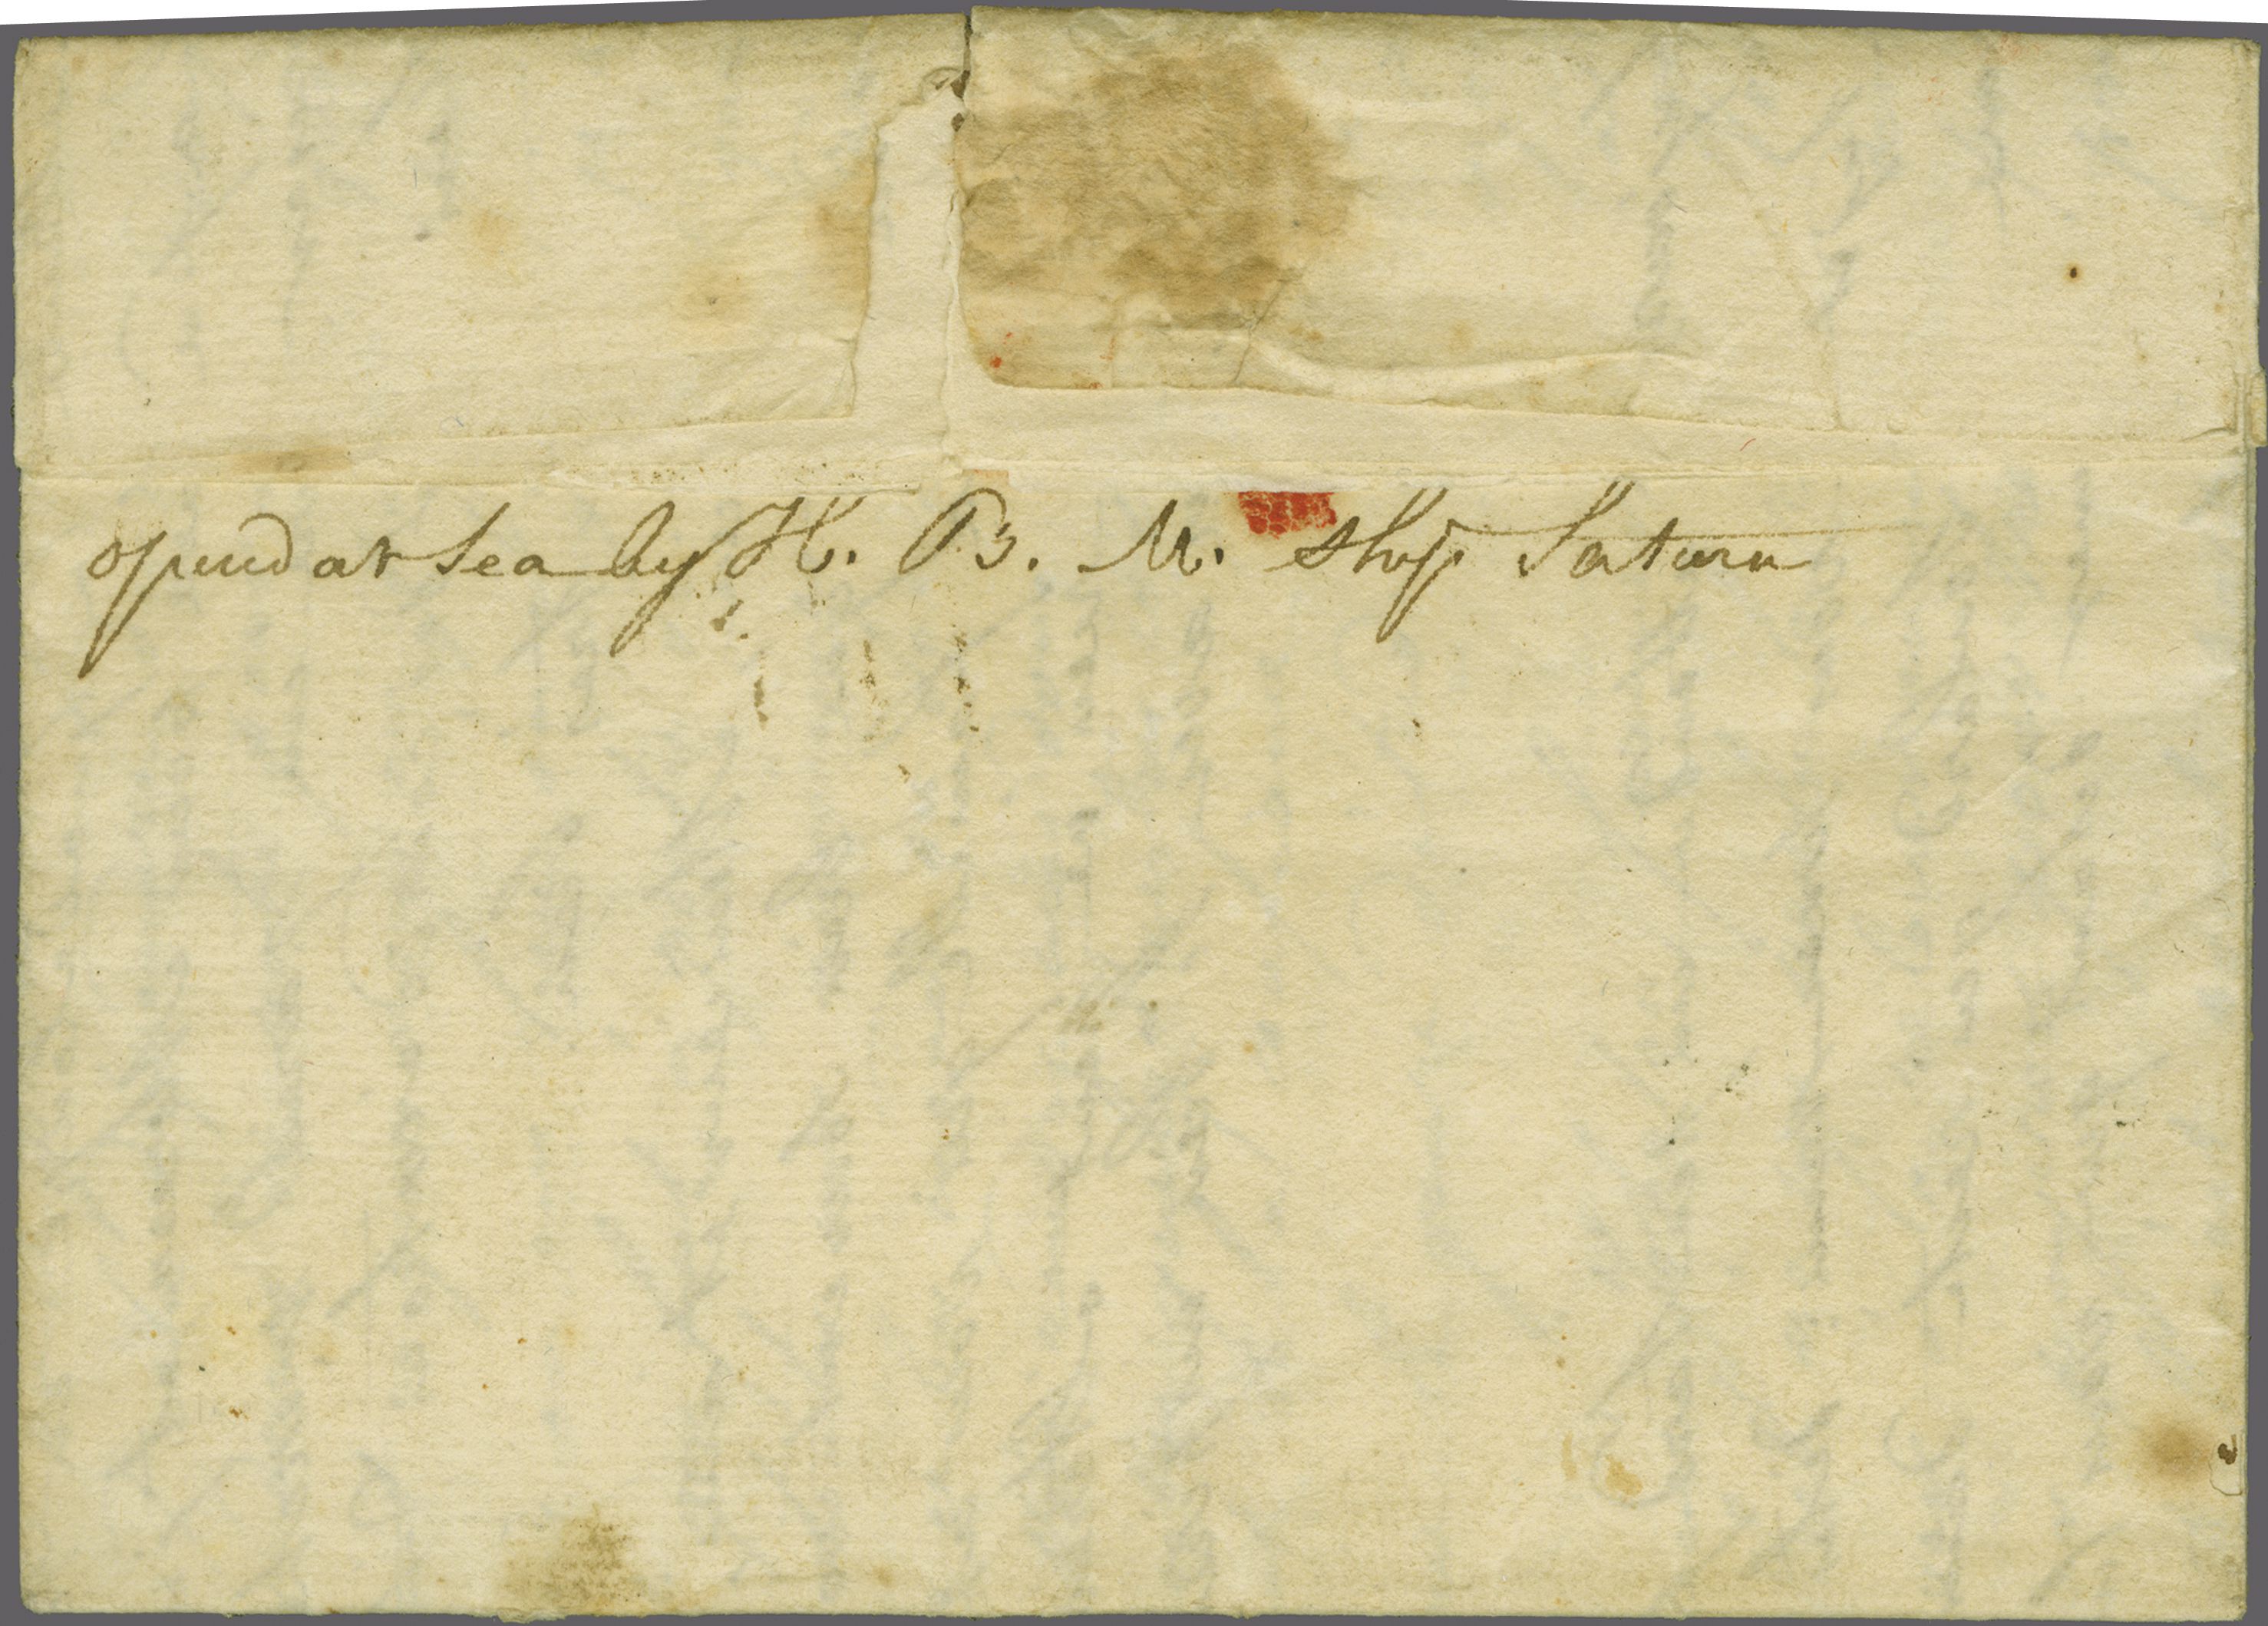 opend at Sea by H. B. M. Ship Saturn